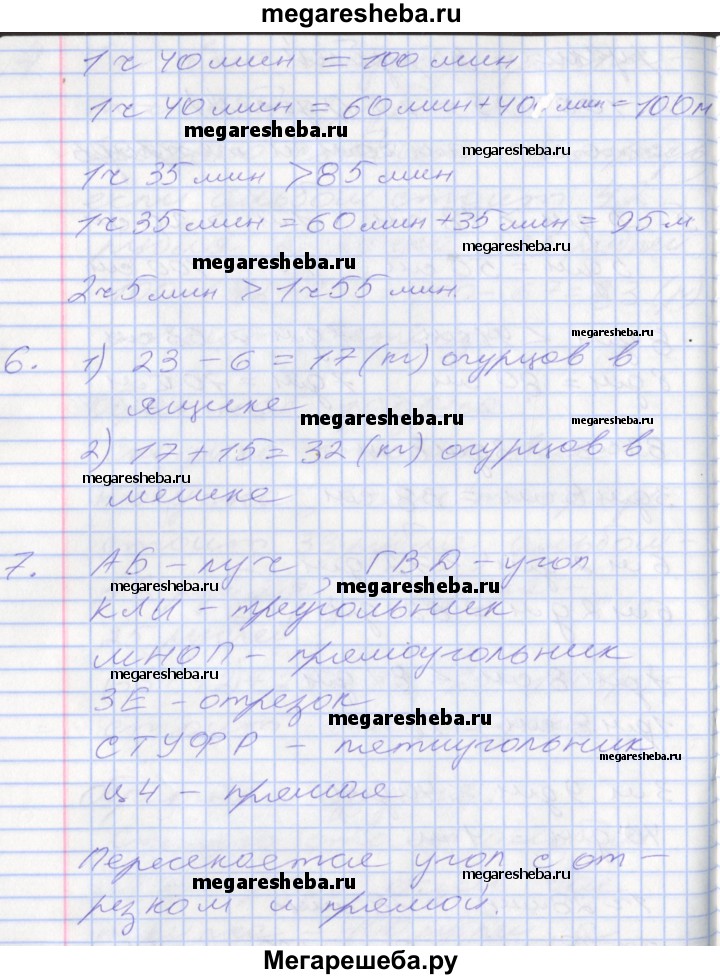 megaresheba.ru
1 ч 40 мин = 100 мин
1 ч 40 мин = 60 мин + 40 мин = 100 м
megaresheba.ru
megaresheba.ru
1 ч 35 мин > 85 мин
1 ч 35 мин = 60 мин + 35 мин = 95 м
megaresheba.ru
megaresheba.ru
2 ч 5 мин > 1 ч 55 мин.
megaresheba.ru
6. 1) 23 - 6 = 17 (кг) огурцов в
ящике
megaresheba.ru
2) 17 + 15 = 32 (кг) огурцов в
megaresheba.ru
мешке
7. АБ - луч, ГВД - угол
megaresheba.ru
megaresheba.ru
КЛИ - треугольник
МНОП - прямоугольник
megaresheba.ru
ЗЕ - отрезок
megaresheba.ru
СТУФР - пятиугольник
megaresheba.ru
ЦЧ - прямая
Пересекается угол с от -
megaresheba.ru
megaresheba.ru
резком и прямой.
Мегарешеба.ру